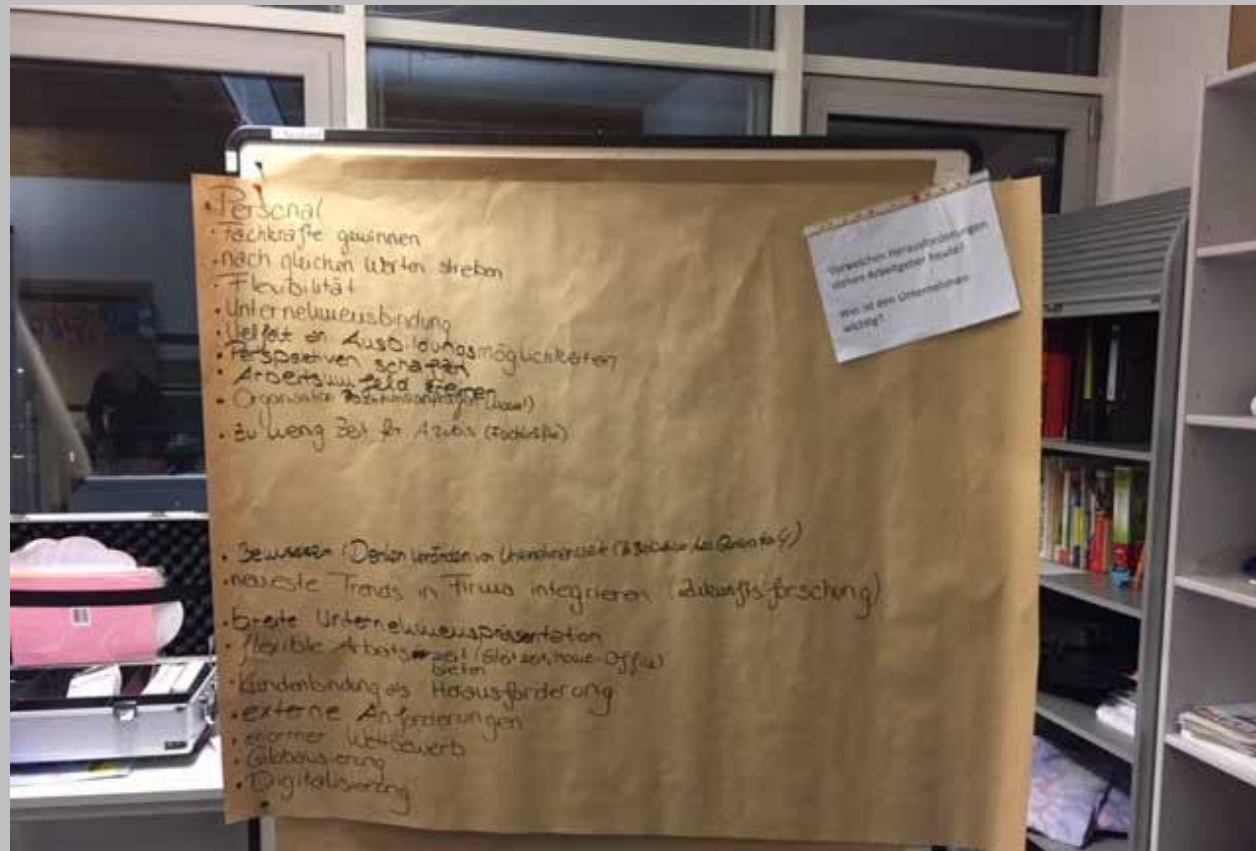 • Personal
• Fachkräfte gewinnen
• nach gleichen Werten streben
• Flexibilität
• Unternehmensbindung
• Vielfalt an Ausbildungsmöglichkeiten
• Perspektiven schaffen
• Arbeitsumfeld
• Organisation
• zu wenig Zeit für Azubis (Fachkräfte)
• Bewusstes Denken
• neueste Trends in Firma integrieren (Zukunftsforschung)
• breite Unternehmenspräsentation
• flexible Arbeitszeit (Gleitzeit, Home-Office)
bieten
• Kundenbindung als Herausforderung
• externe Anforderungen
• enormer Wettbewerb
• Globalisierung
• Digitalisierung
Vor welchen Herausforderungen
stehen Arbeitgeber heute?
Was ist den Unternehmen
wichtig?